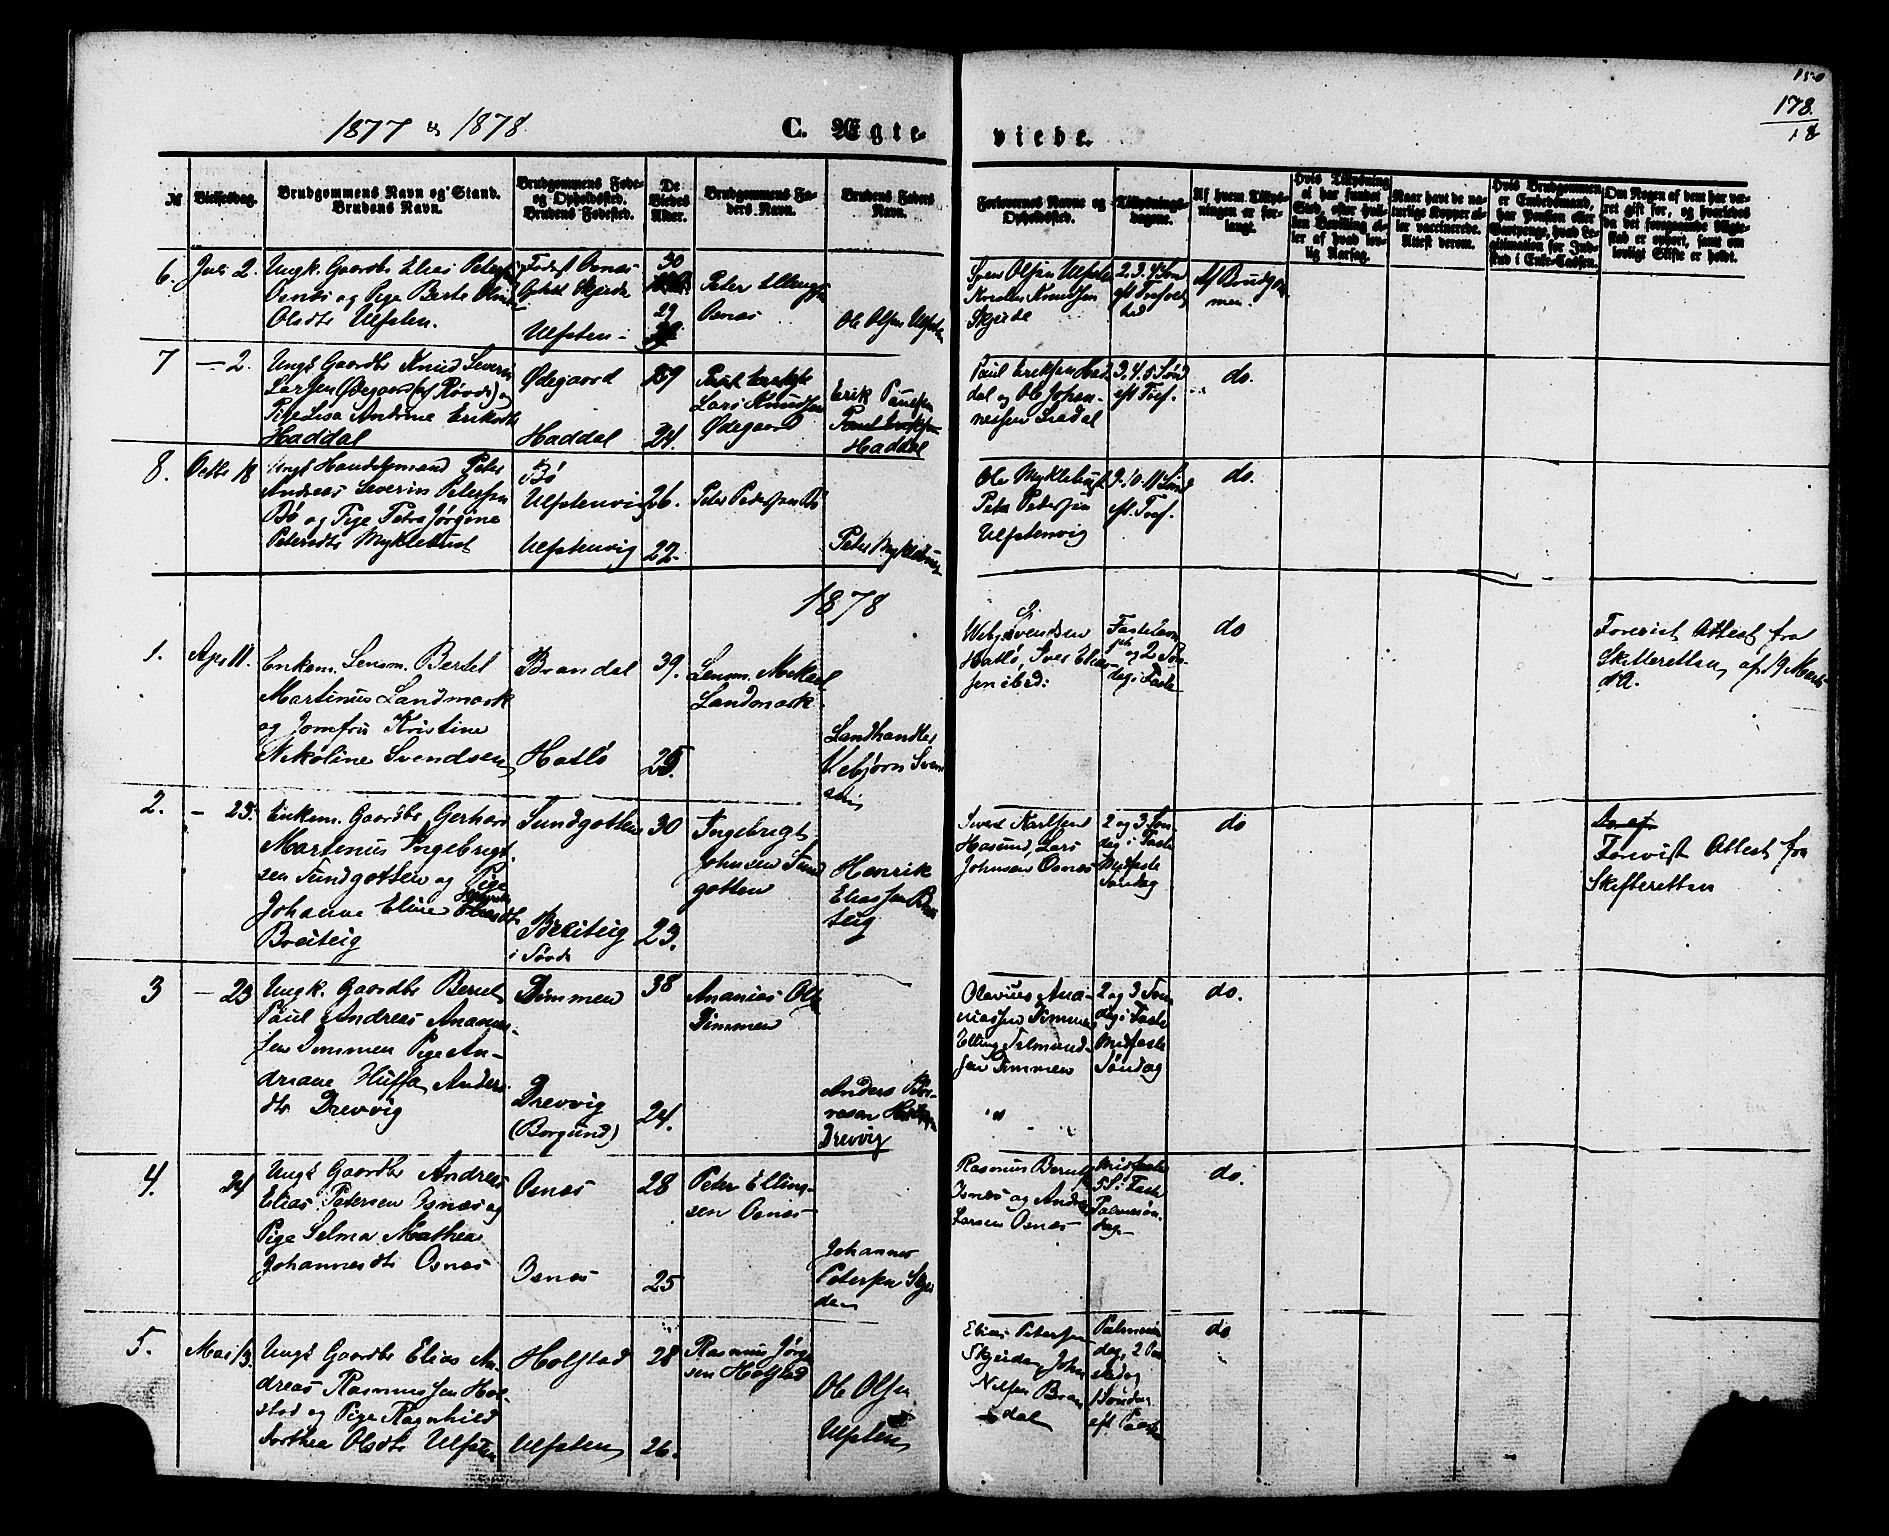 150
178
18
1877 & 1878
C. Ægte-
viede.
№
Vielsesdag.
Brudgommens Navn og Stand.
Brudens Navn.
Brudgommens Føde-
og Opholdssted.
Brudens Fødested.
De
Viedes
Alder.
Brudgommens Fa-
ders Navn.
Brudens Faders
Navn.
Forlovernes Navne og
Opholdssted.
Tillysnings-
dagene.
Af hvem Tillys-
ningen er for-
langt.
Hvis Tillysning
ei har fundet
Sted, efter hvil-
ken Bevilling el-
ler af hvad lov-
lig Aarsag.
Naar havt de na-
turlige Kopper el-
ler vaccinerede.
Attest derom.
Hvis Brudgommen
er Embedsmand,
Om Nogen af dem har væ-
ret gift før, og hvorledes
6. Juli 2.
Ungk. Gaardbr Elias Peters
Osnæs og Pige Berte
Olsdtr Ulfsten.
Osnæs
Ulfsten
30
29
Peter Ellings
Osnæs
Ole Olsen Ulfsten
Sven Olsen Ulfsten
Knudsen
Skjeide
2. 3. 4 Søn
eft Trefoldig
hed
Af Brudgom
men.
7 — 2.
Ungk Gaardbr Knud Severin
Larsen Ødegaard (af Rövde) og
Pige Lisa Andrine Eriksdtr
Haddal
Ødegaard
Haddal
24.
Lars Knudsen
Ødegaard
Erik Paulsen
Haddal
Paul Eriksen Had
dal og Ole Johan-
nessen Lidal
3. 4. 5 Søn
eft Tref.
do.
8. Octbr 18
Ungk Handelsmand Peter
Andreas Severin Petersen
Bö og Pige Petra Jörgine
Petersdtr Myklebust
Bö
Ulfstenvig
Ulfstenvig
26.
22.
Peter Petersen Bö
Peter Myklebust
Ole Myklebust
Peter Petersen
Ulfstenvig
9. 10. 11 Sönd
eft. Tref.
do.
1878
1. Apr 11.
Enkem. Lensm. Bertel
Martinus Landmark
og Jomfru Kristine
Nikoline Svendsen
Brandal
Hatlö
39.
25.
Lensm. Mikael
Landmark
Landhandler
Vebjörn Svend
sen
Webj Svendsen
Hatlö, Iver Elias-
sen ibid:
Fastelavn
og 2 Søn-
dag i Faste
do
Forevist Attest fra
Skifteretten af 19 Marts
d.A.
2. — 23.
Enkem. Gaardbr Gerhard
Martinus Ingebrigt-
sen Sundgotten og Pige
Johanne Eline
Breiteig
Sundgotten
Breiteig
i Sövde
30
23.
Ingebrigt
Johnsen Sund
gotten
Henrik
Eliassen Brei
teig
Sivert Karlsen
Hasund, Lars
Johnsen Osnæs
2 og 3 Søn-
dag i Faste
Midfaste
Søndag
do
Forevist Attest fra
Skifteretten
3 — 23
Ungk. Gaardbr Bernt
Paul Andreas Ananias-
sen Dimmen Pige An-
driane Huffa Anders
dtr Drevvig
Dimmen
Drevvig
(Borgund)
38
24.
Ananias Ols
Dimmen
Anders
Drevvig
Olavius Ana-
niassen Dimmen
Elling
sen Dimmen
2 og 3 Søn
dag i Faste
Midfaste
Søndag
do.
4. 24
Ungk Gaardbr Andreas
Elias Petersen Osnæs og
Pige Selma Mathea
Johannesdtr Osnæs
Osnæs
Osnæs
28
25
Peter Elling-
sen Osnæs
Johannes
Petersen Skjei
den
Rasmus Bernts
Osnæs og Andr
Larsen Osnæs
Midfaste
5 S. i Faste
Palmesøn-
dag
do.
5. Mai 13.
Ungk Gaardbr Elias An-
dreas Rasmussen Hol-
stad og Pige Ragnhild
Dorthea Olsdtr Ulfsten
Holstad
Ulfsten
28
26.
Rasmus Jörg
sen Holstad
Ole Olsen
Ulfsten
Elias Petersen
Skjeiden, John
Nilsen Bran
dal
do